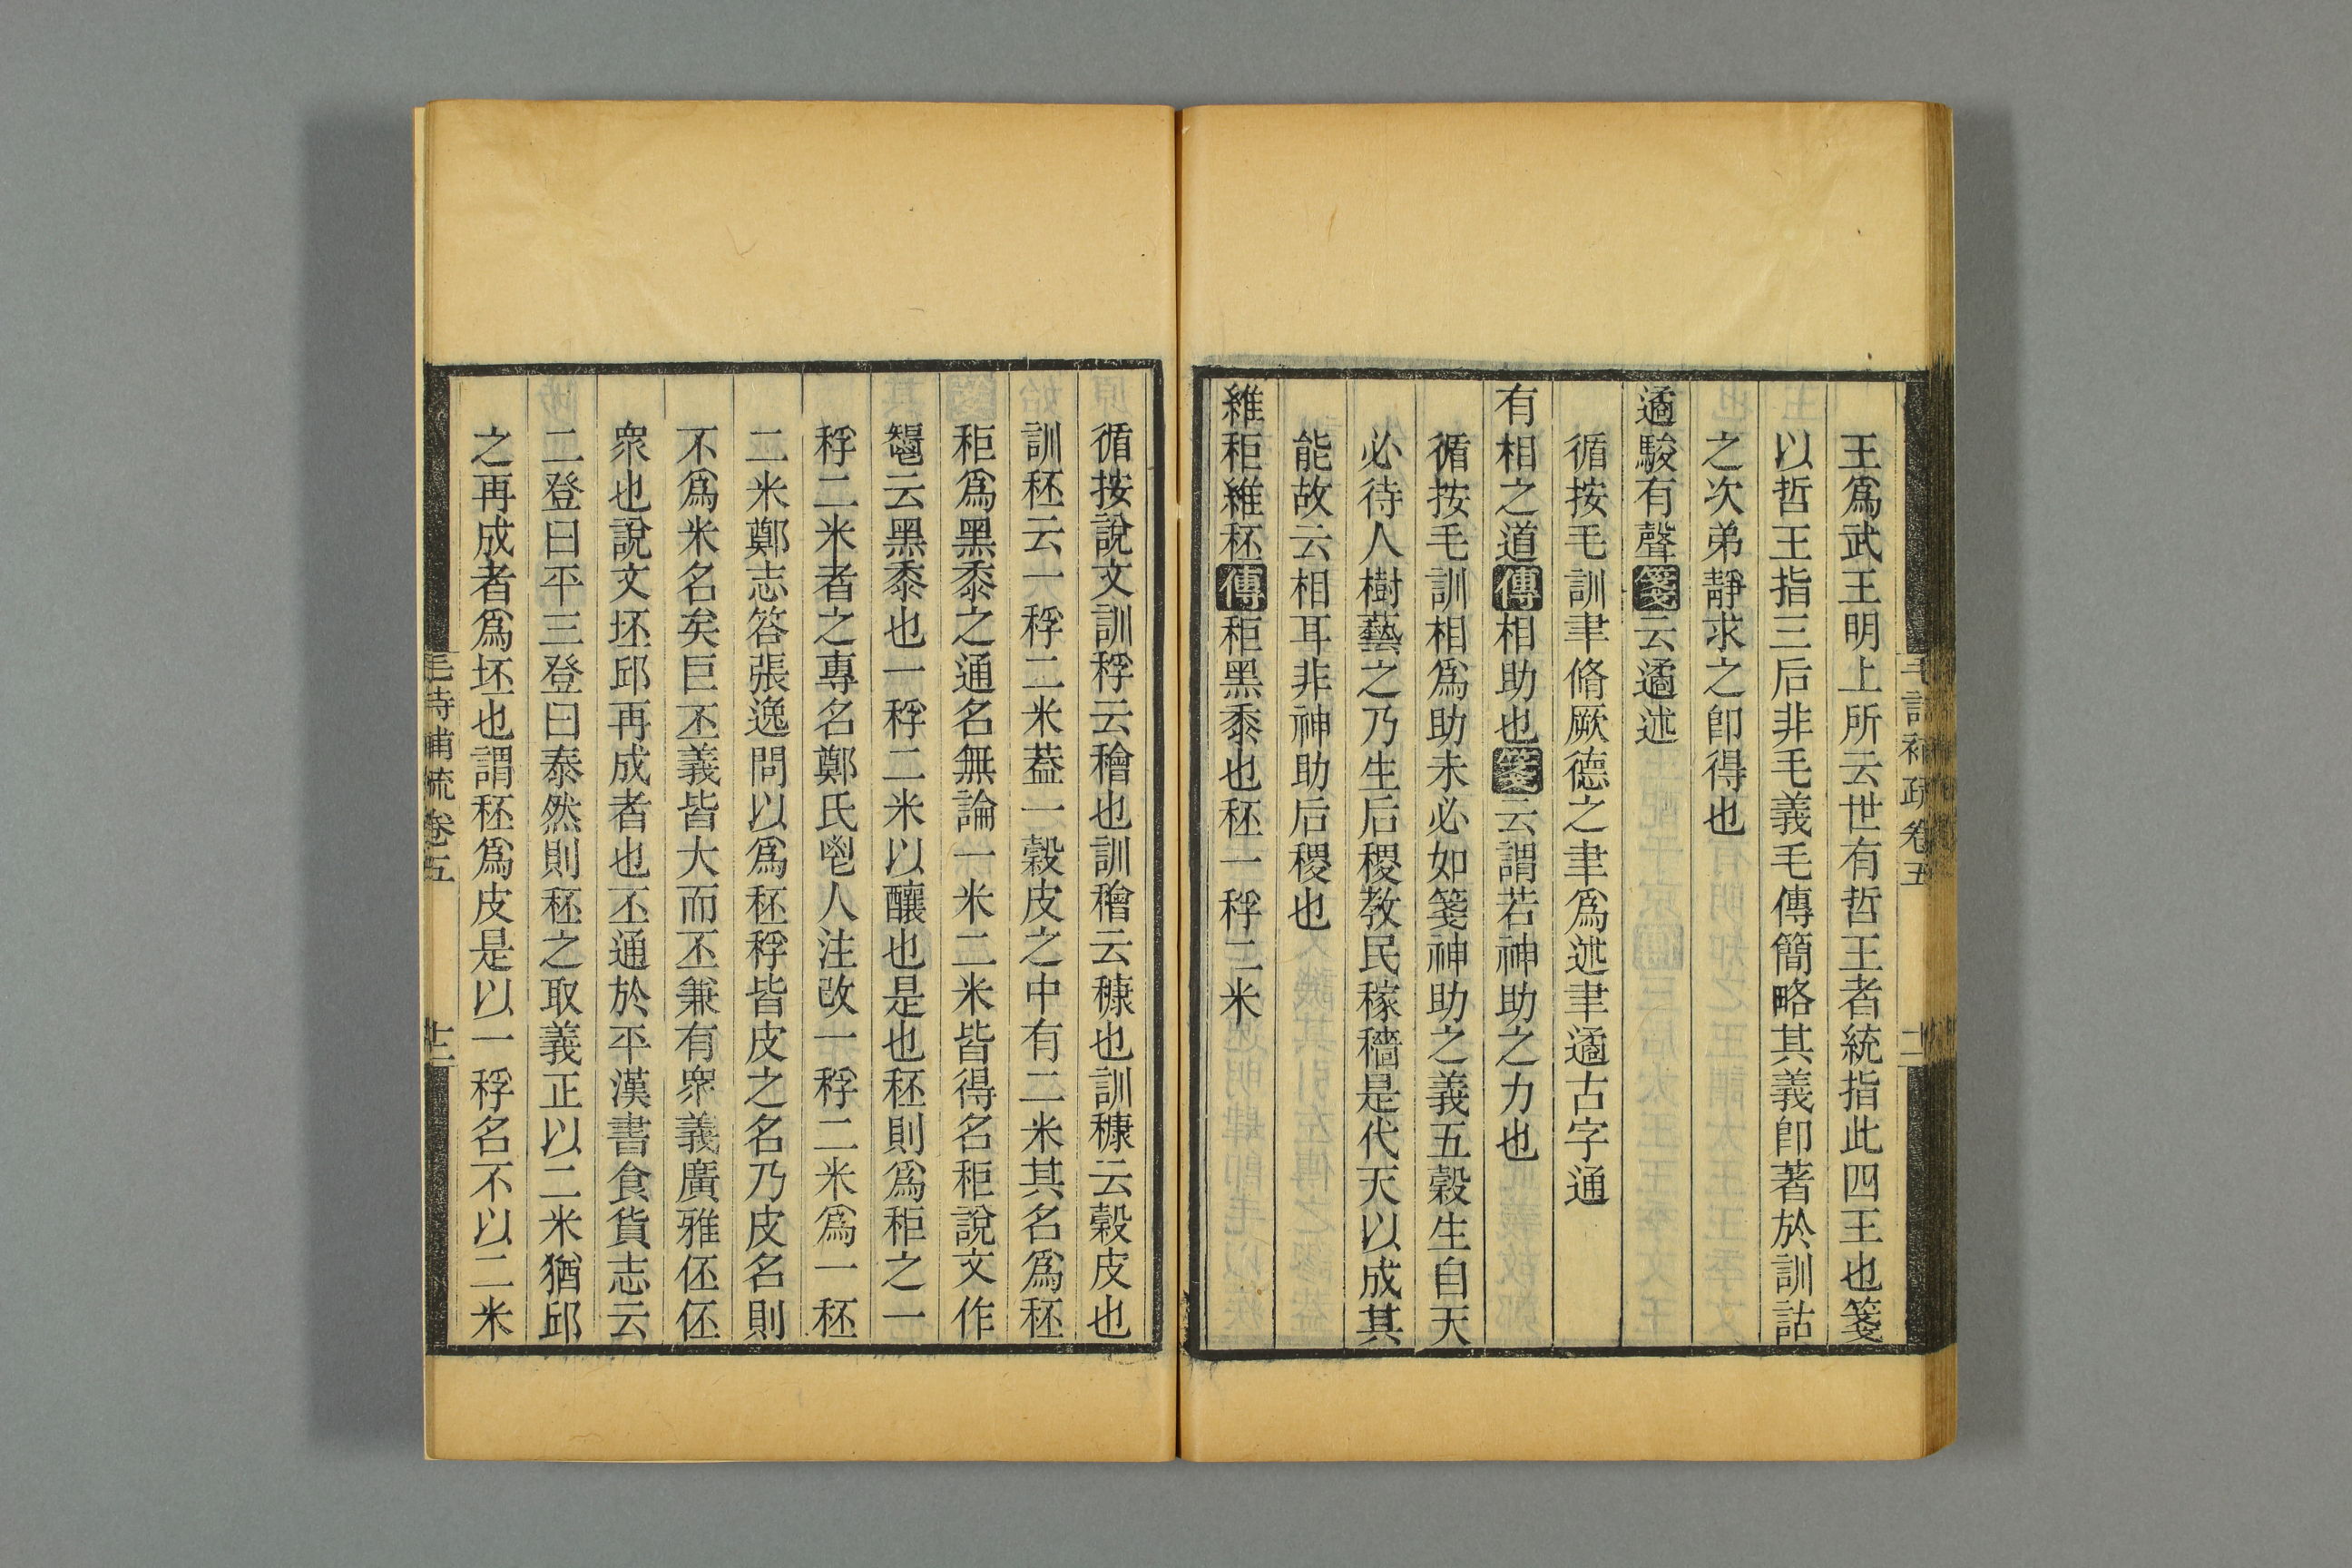 王爲武王明上所云世有哲王者統指此四王也箋
以哲王指三后非毛義毛傳簡略其義卽著於訓詁
之次弟靜求之卽得也
遹駿有聲箋云遹述
循按毛訓聿脩厥德之聿爲述聿遹古字通
有相之道傳相助也箋云謂若神助之力也
循按毛訓相爲助未必如箋神助之義五穀生自天
必待人樹藝之乃生后稷教民稼穡是代天以成其
能故云相耳非神助后稷也
維秬維秠傳秬黑黍也秠一稃二米
毛詩補疏卷五
循按說文訓稃云穭也訓穭云穅也訓穅云穀皮也
訓秠云一稃二米葢一穀皮之中有二米其名爲秠
秬爲黑黍之通名無論一米二米皆得名秬說文作
𩰤云黑黍也一稃二米以釀也是也秠則爲秬之一
稃二米者之專名鄭氏鬯人注改一稃二米爲一秠
二米鄭志答張逸問以爲秠稃皆皮之名乃皮名則
不爲米名矣巨丕義皆大而丕兼有衆義廣雅伾伾
衆也說文坯邱再成者也丕通於平漢書食貨志云
二登曰平三登曰泰然則秠之取義正以二米猶邱
之再成者爲坯也謂秠爲皮是以一稃名不以二米
毛詩補疏卷五